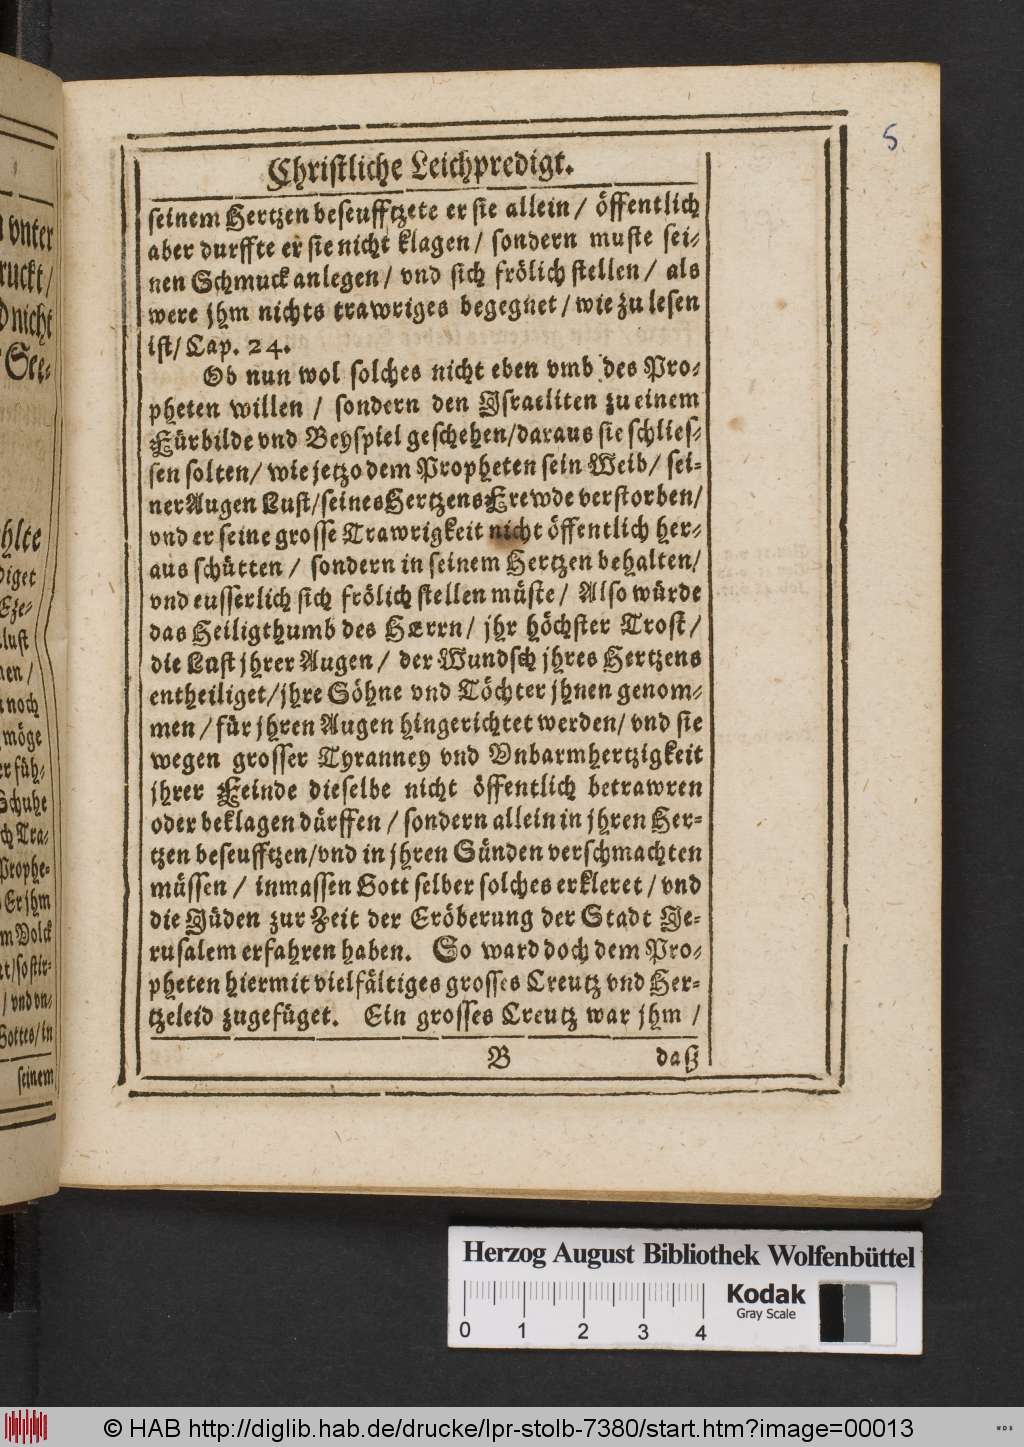 n vnter
ruckt/
d nicht
See-
hlte
diget
Eze-
lust
nen /
noch
möge
er füh-
Schuhe
ch Tra-
Prophe-
Er jhm
m Volck
t/ so stir-
/ vnd vn-
Gottes/ in
seinem
5
Christliche Leichpredigt.
seinem Hertzen beseufftzete er sie allein / öffentlich
aber durffte er sie nicht klagen / sondern muste sei-
nen Schmuck anlegen / vnd sich frölich stellen / als
were jhm nichts trawriges begegnet / wie zu lesen
ist / Cap. 24.
Ob nun wol solches nicht eben vmb des Pro-
pheten willen / sondern den Israeliten zu einem
Fürbilde vnd Beyspiel geschehen / daraus sie schlies-
sen solten / wie jetzo dem Propheten sein Weib / sei-
ner Augen Lust / seines Hertzens Frewde verstorben /
vnd er seine grosse Trawrigkeit nicht öffentlich her-
aus schütten / sondern in seinem Hertzen behalten /
vnd eusserlich sich frölich stellen müste / Also würde
das Heiligthumb des HErrn / jhr höchster Trost /
die Lust jhrer Augen / der Wundsch jhres Hertzens
entheiliget / jhre Söhne vnd Töchter jhnen genom-
men / für jhren Augen hingerichtet werden / vnd sie
wegen grosser Tyranney vnd Vnbarmhertzigkeit
jhrer Feinde dieselbe nicht öffentlich betrawren
oder beklagen dürffen / sondern allein in jhren Her-
tzen beseufftzen / vnd in jhren Sünden verschmachten
müssen / inmassen Gott selber solches erkleret / vnd
die Jüden zur Zeit der Eröberung der Stadt Je-
rusalem erfahren haben. So ward doch dem Pro-
pheten hiermit vielfältiges grosses Creutz vnd Her-
tzeleid zugefüget. Ein grosses Creutz war jhm /
B daß
Herzog August Bibliothek Wolfenbüttel
0 1 2 3 4
Kodak
Gray Scale
© HAB http://diglib.hab.de/drucke/lpr-stolb-7380/start.htm?image=00013